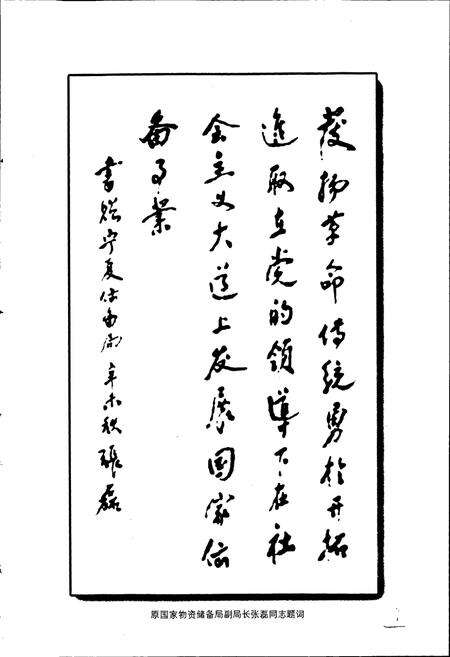 發扬革命傳統勇於开拓
進取在党的領導下在社
会主义大道上发展国家储
备事業
書贈宁夏储备局 辛未秋 張磊
原国家物资储备局副局长张磊同志题词